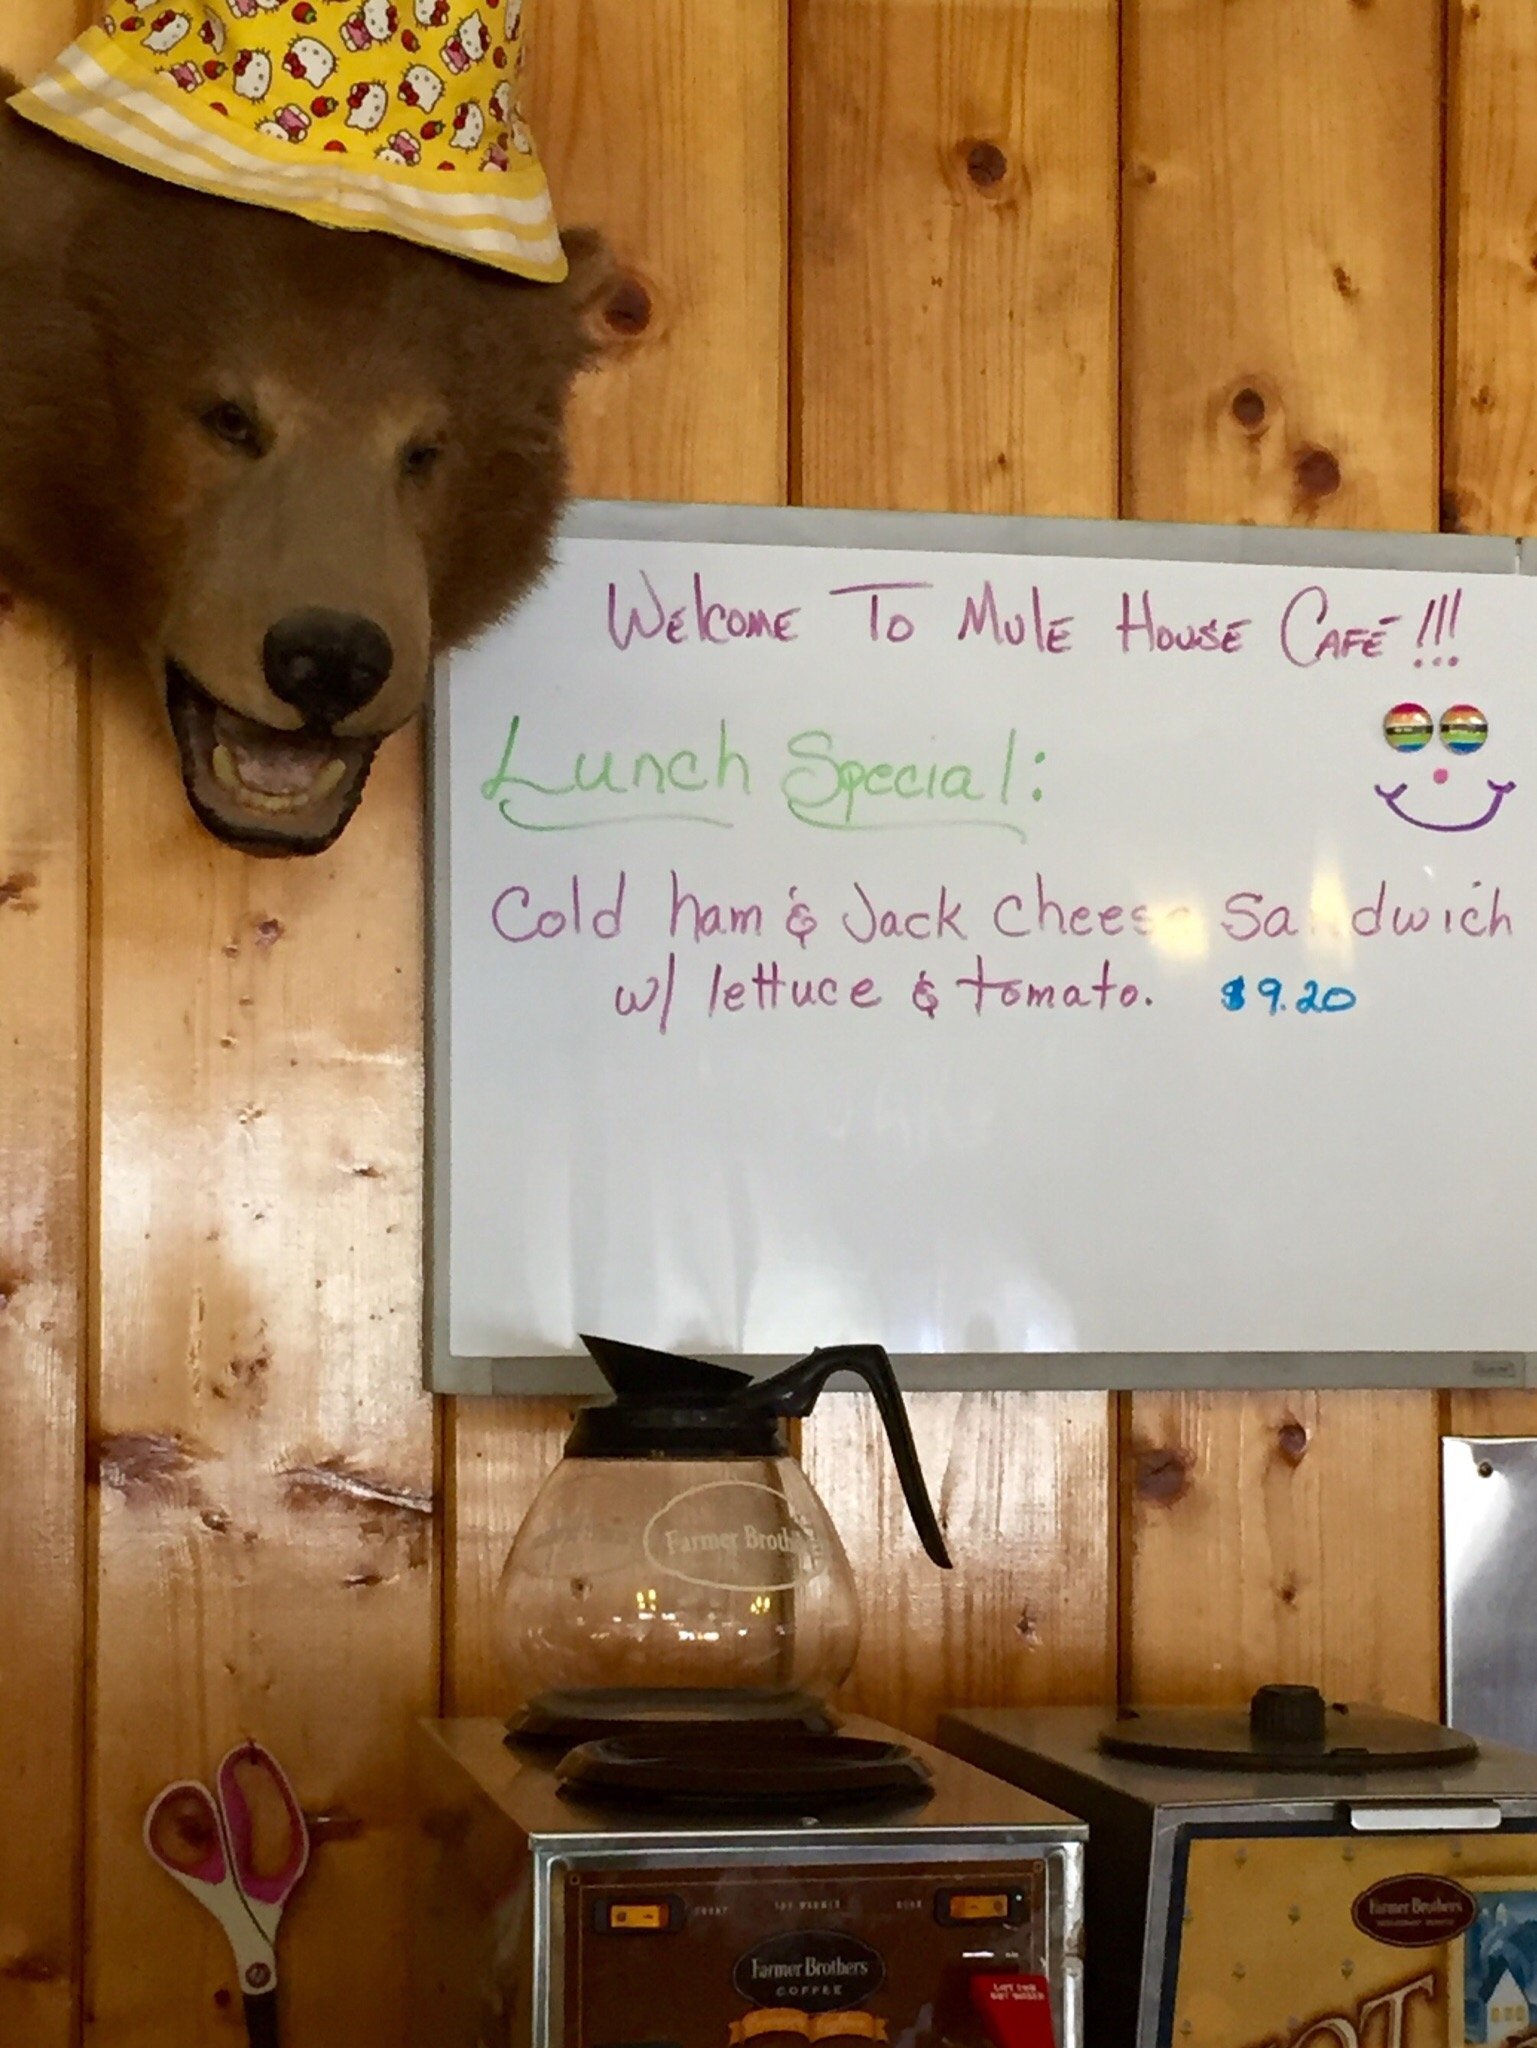 Welcome To Mule House Café!!!
Lunch Special:
Cold ham & Jack cheese sandwich
w/ lettuce & tomato. $9.20
Farmer Brothers
Farmer Brothers
COFFEE
Farmer Brothers